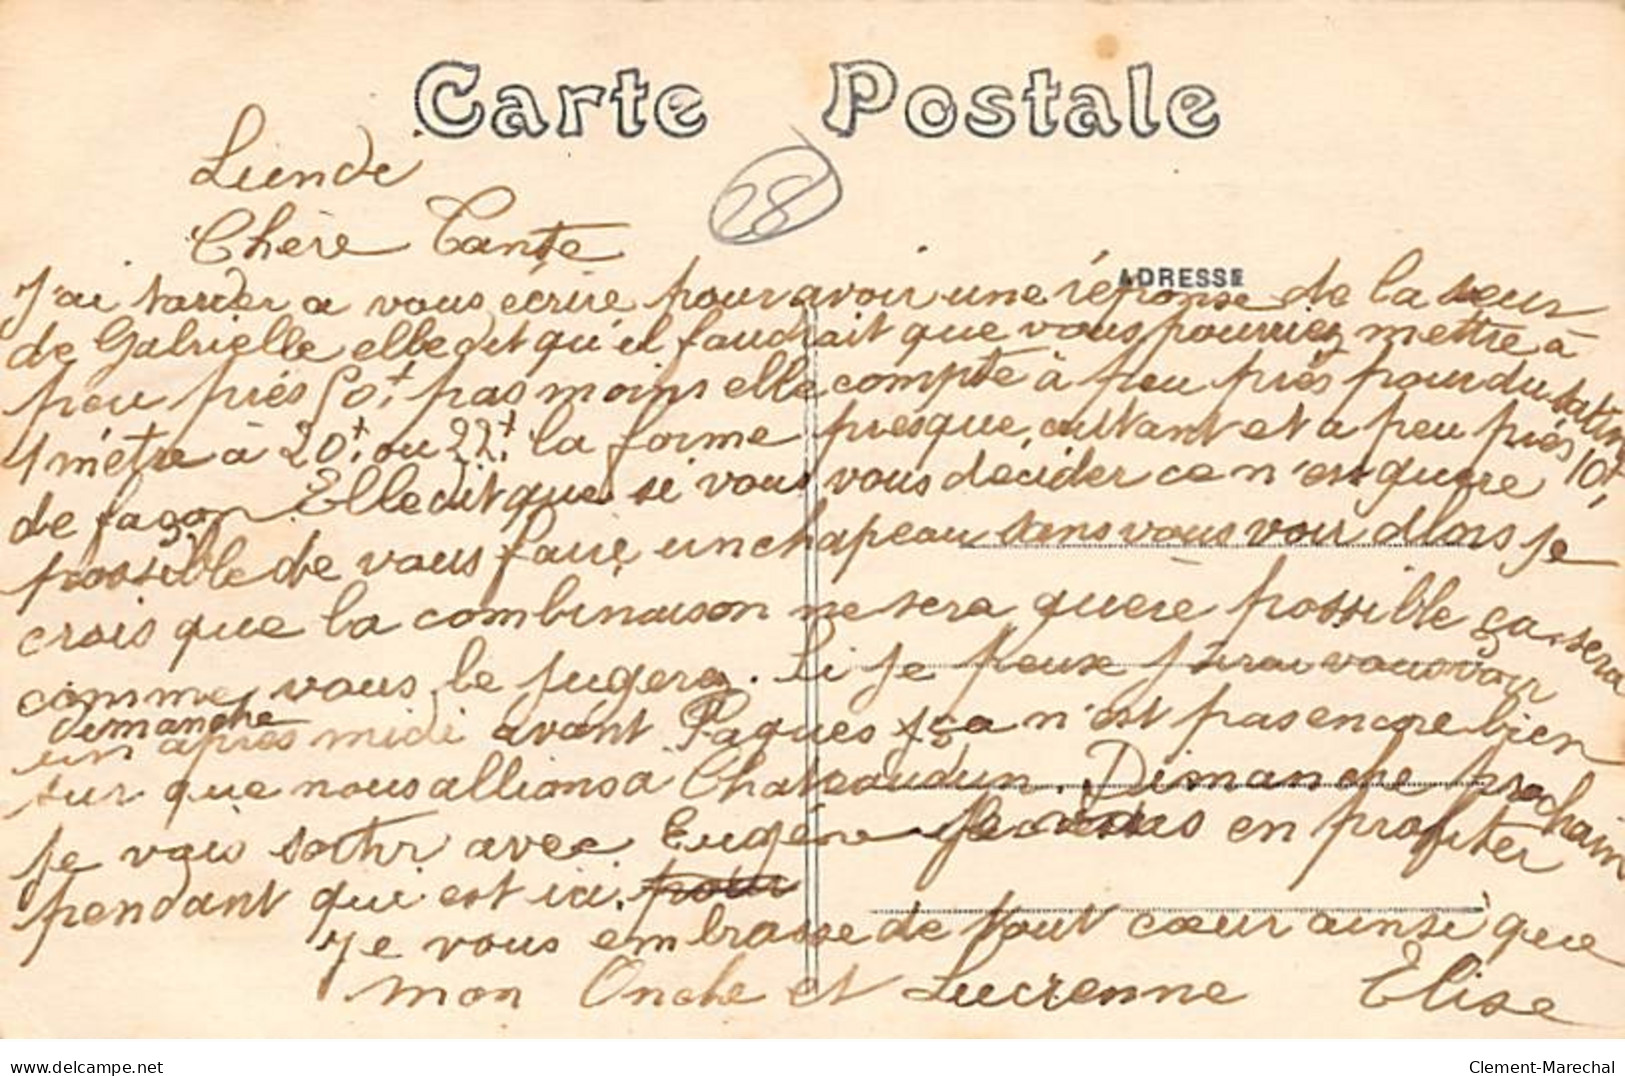 Carte Postale
28
ADRESSE
Chère Tante
J'ai tarder a vous écrire pour avoir une réponse de la seur
de Gabrielle elle dit qu'il faudrait que vous pourriez mettre à
peu près 50f, pas moins elle compte à peu près pour du satin
1 mètre à 20f. ou 22f. la forme presque autant et a peu près 10f,
de façon. Elle dit que si vous vous décider ce n'est guere
possible de vous faire un chapeau sans vous voir alors je
crois que la combinaison ne sera guère possible ça sera
comme vous le jugerez. Si je peux j'irai vous voir
dimanche
un après midi avant Paques ça n'est pas encore bien
sur que nous allions a Chateaudun. Dimanche prochain
je vais sortir avec Eugène je vais en profiter
pendant qui est ici.
Je vous embrasse de tout cœur ainsi que
mon Oncle et Lucienne Elise
delcampe.net
Clement-Marechal